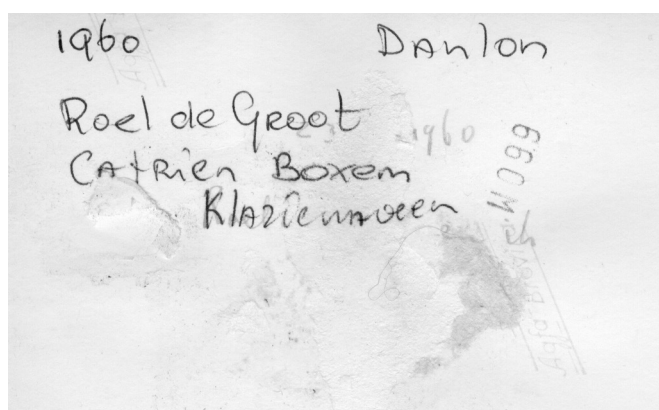 1960 Danlon
Roel de Groot
Catrien Boxem
Klazienaveen
1960
M099
Agfa Brovira